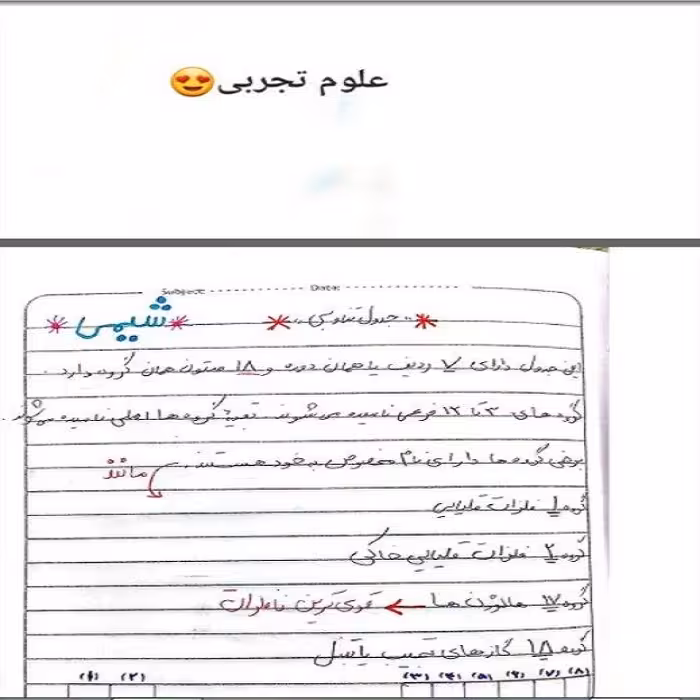 علوم تجربی😍
Subject: Date:
* شیمی * * جدول تناوبی *
این جدول دارای 7 ردیف یا همان دوره و 18 ستون همان گروه دارد.
گروه های 3 تا 12 فرعی نامیده می شوند بقیه گروه ها اصلی نامیده می شوند.
برخی گروه ها دارای نام مخصوص به خود هستند مانند
گروه 1 فلزات قلیایی
گروه 2 فلزات قلیایی خاکی
گروه 17 هالوژن ها ← قوی ترین نافلزات
گروه 18 گازهای نجیب یا تنبل
(1) (2) (3) (4) (5) (6) (7) (8)